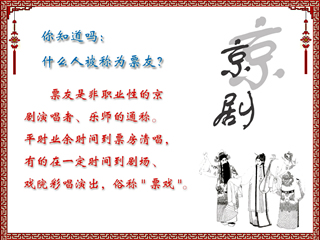 你知道吗：
什么人被称为票友？
票友是非职业性的京
剧演唱者、乐师的通称。
平时业余时间到票房清唱，
有的在一定时间到剧场、
戏院彩唱演出，俗称"票戏"。
京
京
剧